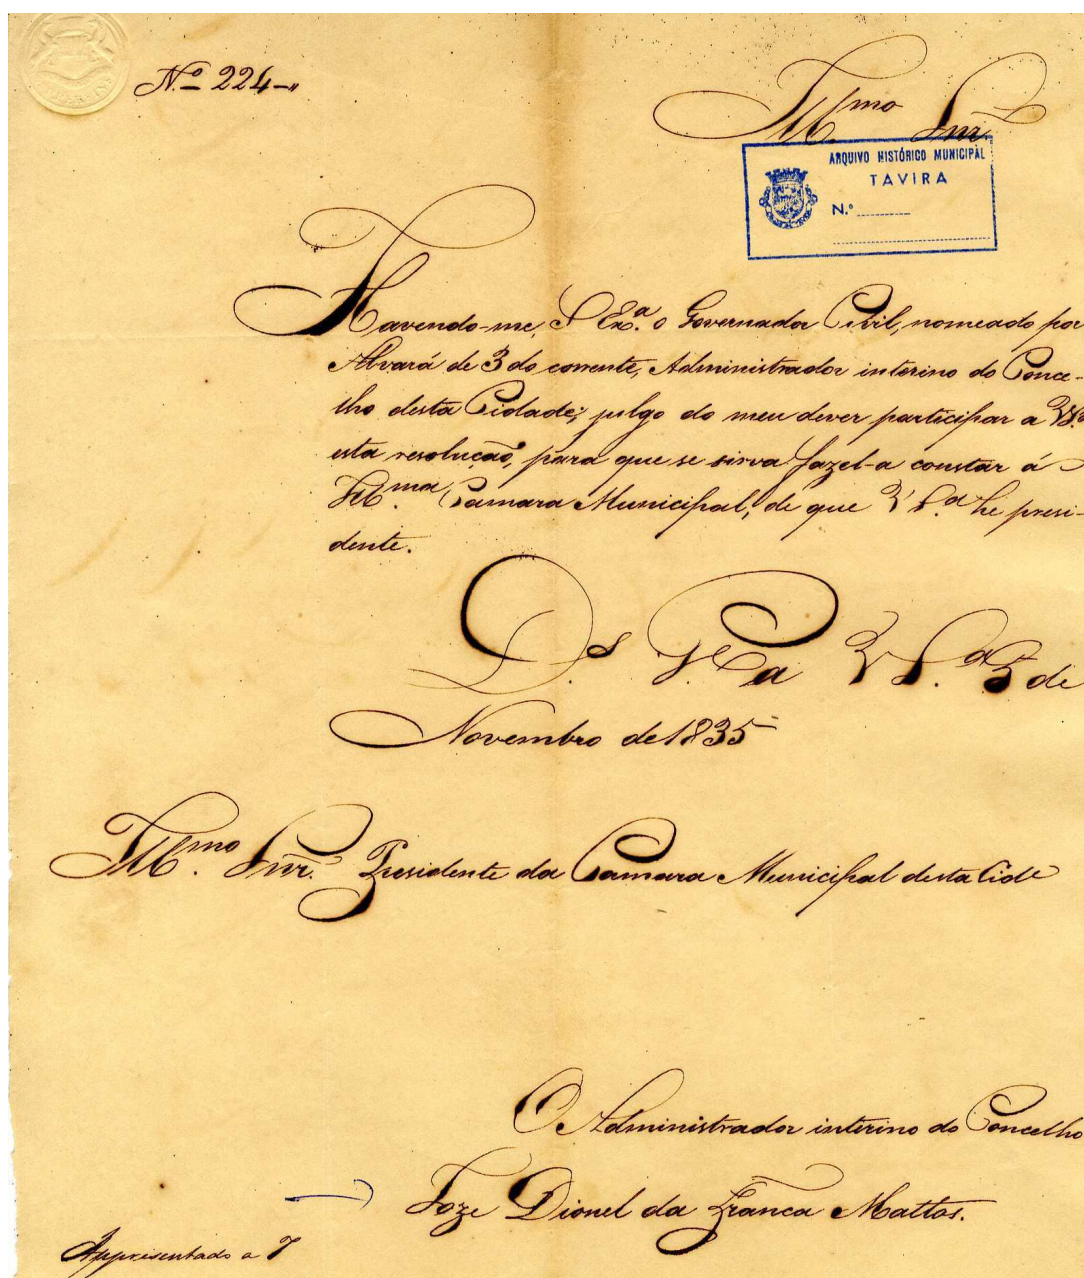 N.º 224-"
Ill.mo Snr.
ARQUIVO HISTÓRICO MUNICIPAL
TAVIRA
N.º
Havendo-me, S Ex.ª o Governador Civil, nomeado por
Alvará de 3 do corrente, Administrador interino do Conce-
lho desta Cidade; julgo do meu dever participar a V S.ª
esta resolução, para que se sirva fazel-a constar á
Ill.ma Camara Municipal, de que V S.ª he presi-
dente.
D.s G.e a V S.ª 5 de
Novembro de 1835
Ill.mo Snr. Presidente da Camara Municipal desta Cide
O Administrador interino do Concelho
Joze Dionel da Franca Mattos.
Appresentado a 7